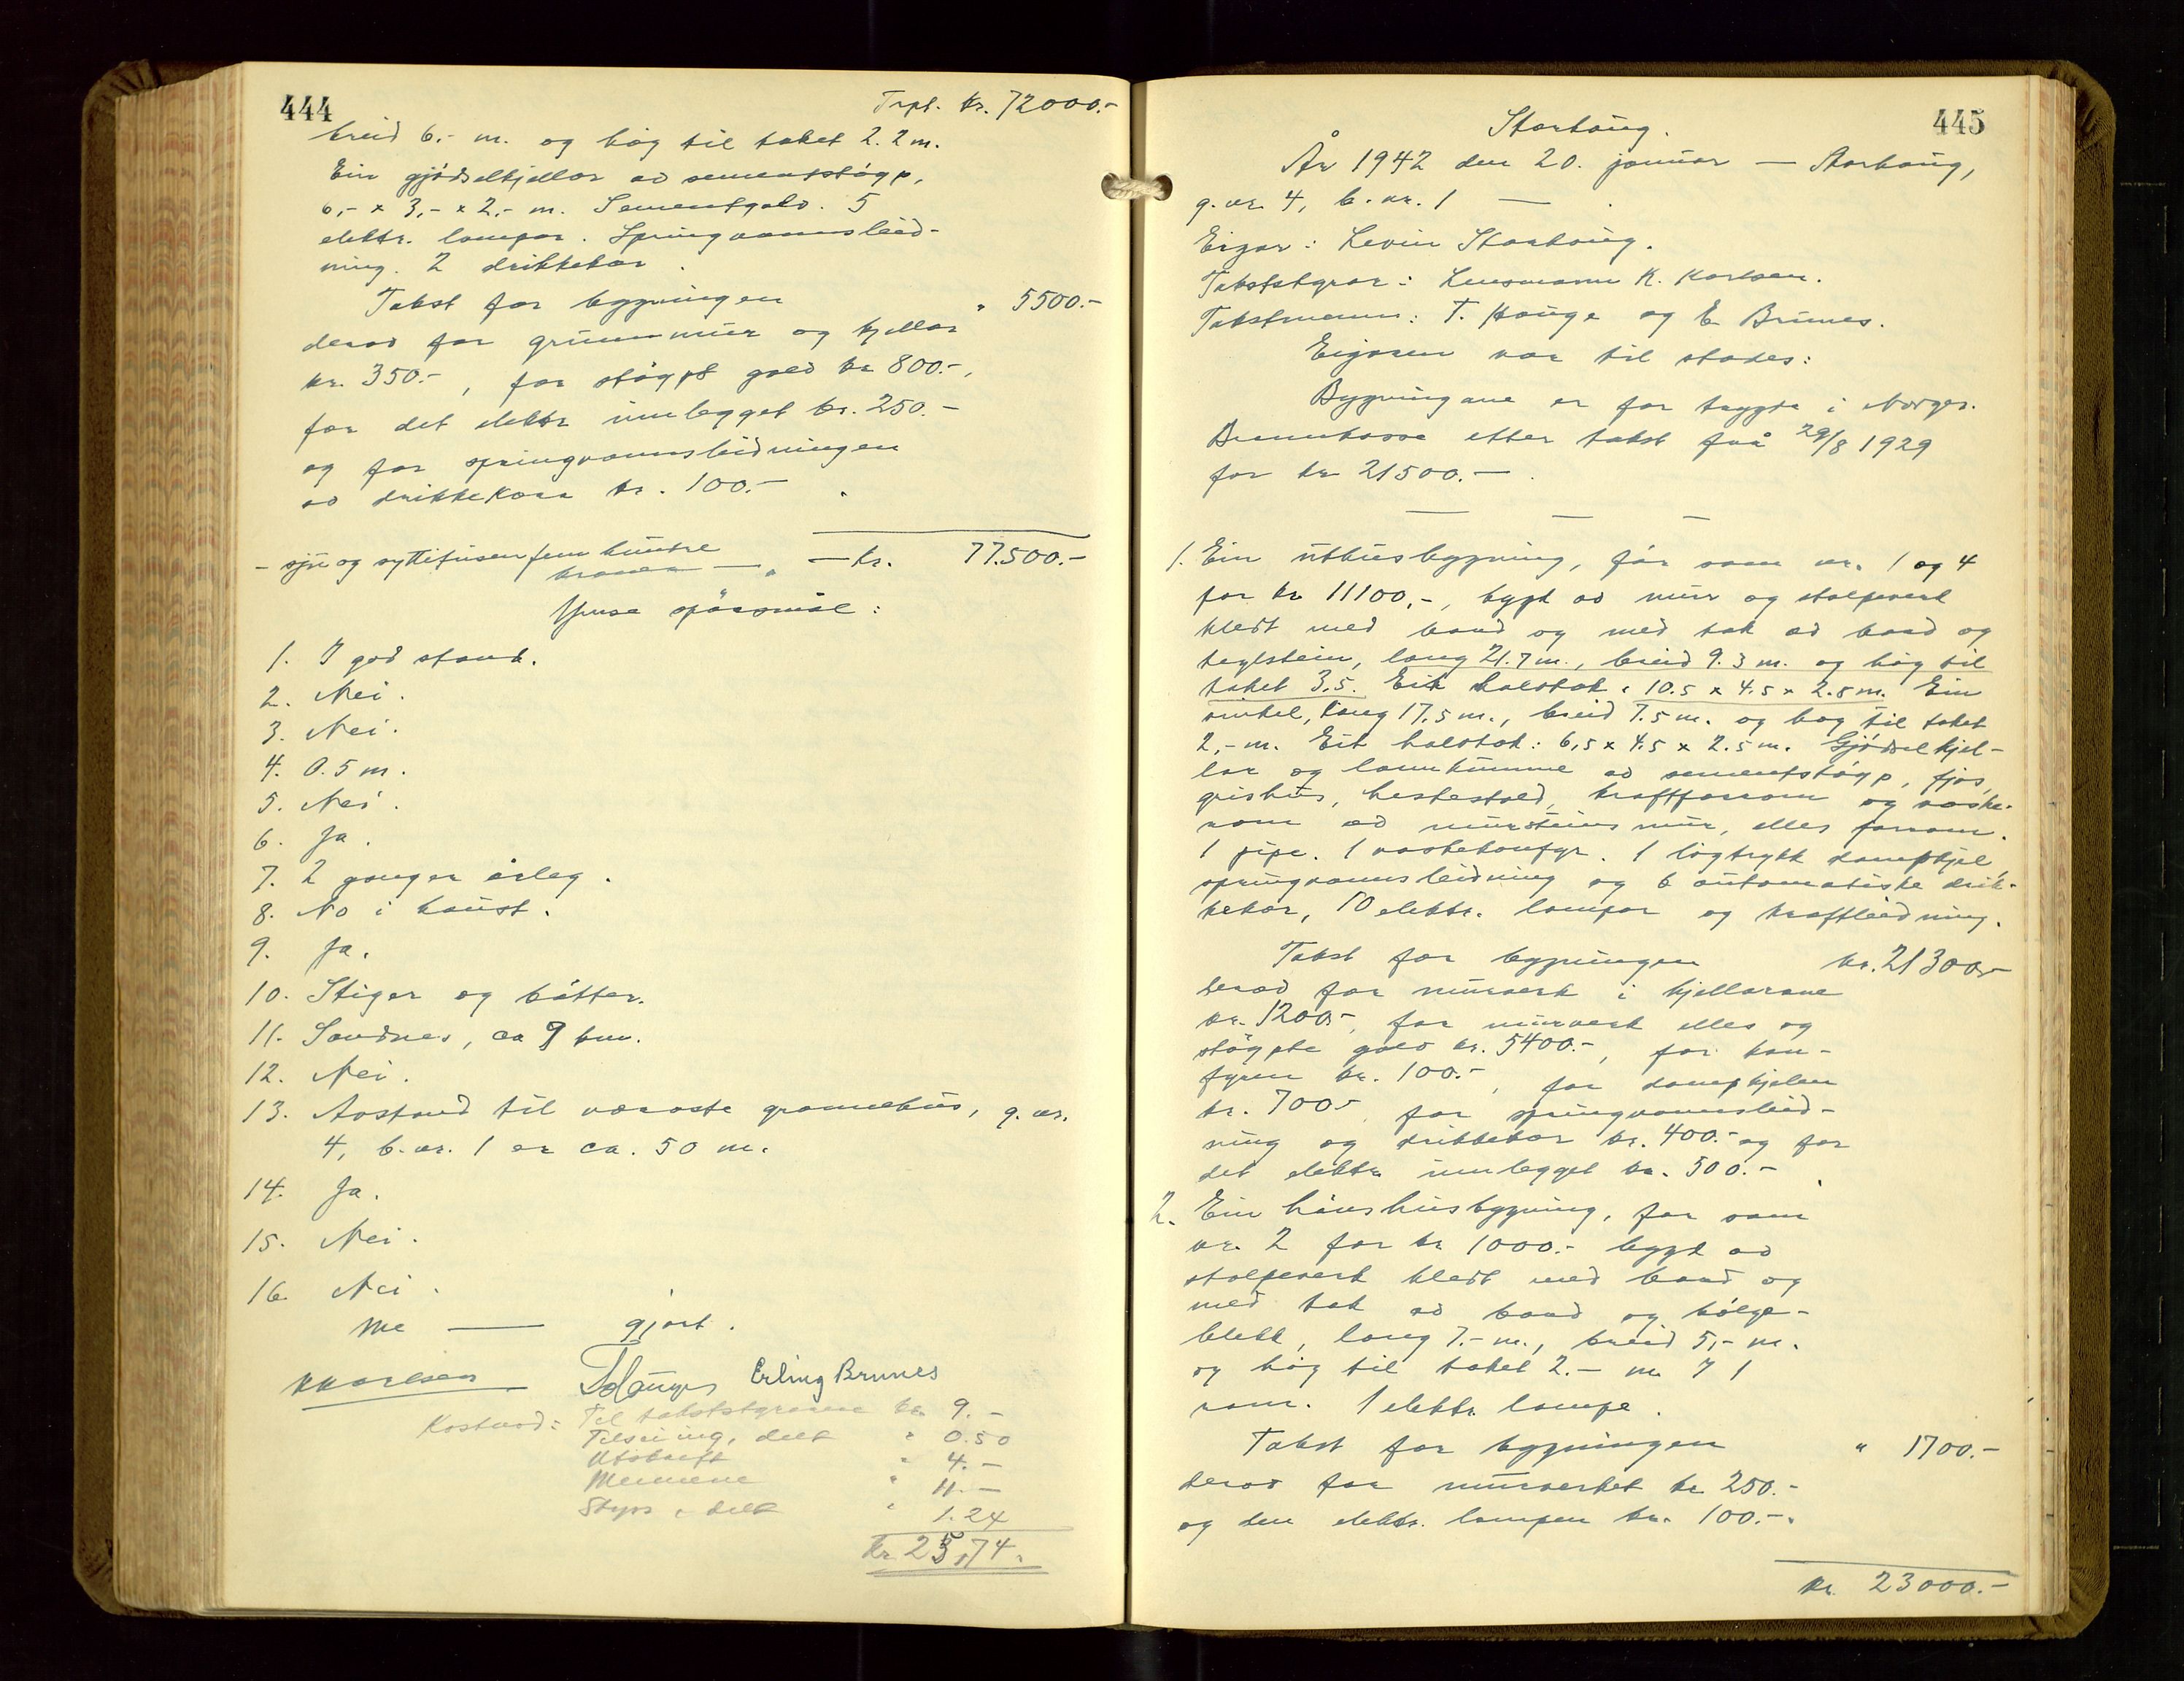 444
Trpt. kr. 72000.-
breid 6.- m. og høg til taket 2.2 m.
Ein gjødselkjellar av sementstøyp,
6,- x 3,- x 2,- m. Sementgolv. 5
elektr. lampar. Springvannsleid-
ning. 2 drikkekar.
Takst for bygningen " 5500.-
derav for grunnmur og kjellar
kr. 350.-, for støypt golv kr 800.-,
for det elektr. innlegget kr. 250.-
og for springvannsleidningen
av drikkekara kr. 100.-
- sju og syttitusen fem hundre
kroner - " - kr. 77.500.-
Ymse spørsmål:
1. I god stand.
2. Nei.
3. Nei.
4. 0.5 m.
5. Nei.
6. Ja.
7. 2 ganger årleg.
8. No i haust.
9. Ja.
10. Stiger og bøtter.
11. Sandnes, ca 9 km.
12. Nei.
13. Avstand til næraste grannehus, g. nr.
4, b. nr. 1 er ca. 50 m.
14. Ja.
15. Nei.
16. Nei.
Me — gjort.
K Karlsen T Hauge Erling Brunes
Kostnad: Til takststyrarne kr 9.-
Tilseiing, delt " 0.50
Utskrift " 4.-
Mennene " 11.-
Skyss, delt " 1.24
Kr 25,74.
445
Storhaug.
År 1942 den 20. januar — Storhaug,
g. nr. 4, b. nr. 1 —
Eigar: Levin Storhaug.
Takststyrar: Lensmann K. Karlsen.
Takstmenn: T. Hauge og E. Brunes.
Eigaren var til stades:
Bygningane er før trygda i Norges
Brannkasse etter takst frå 29/8 1929
for kr 21500.-
— — —
1. Ein uthusbygning, før som nr. 1 og 4
for kr 11100,-, bygt av mur og stolpeverk
kledt med bord og med tak av bord og
teglstein, lang 21.7 m., breid 9.3 m. og høg til
taket 3,5. Eit halvtak: 10.5 x 4.5 x 2.5 m. Ein
vinkel, lang 17,5 m., breid 7.5 m. og høg til taket
2,- m. Eit halvtak: 6,5 x 4.5 x 2.5 m. Gjødselkjel-
lar og landkumme av sementstøyp, fjøs,
grishus, hestestall, kraftforrom og vaske-
rom av mursteins mur, elles forrom.
1 pipe. 1 vaskekomfyr. 1 lågtrykk dampkjel,
springvannsleidning og 6 automatiske drik-
kekar, 10 elektr. lampar og kraftleidning.
Takst for bygningen kr. 21300,-
derav for murverk i kjellarane
kr. 1200.-, for murverk elles og
støypte golv kr. 5400.-, for kom-
fyren kr. 100.-, for dampkjelen
kr. 700.- for springvannsleid-
ning og drikkekar kr. 400.- og for
det elektr. innlegget kr. 500.-
2. Ein hønshusbygning, før som
nr. 2 for kr 1000.- bygt av
stolpeverk kledt med bord og
med tak av bord og bølge-
blekk, lang 7.- m., breid 5,- m.
og høg til taket 2.- m. 1
rom. 1 elektr. lampe.
Takst for bygningen " 1700.-
derav for murverket kr 250.-
og den elektr. lampen kr. 100.-.
kr. 23000.-